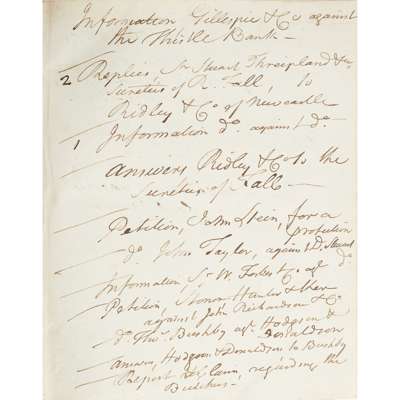 Information Gillespie & Co against
the Thistle Bank
2 Replies, Sr Stuart Threipland &c
Sureties of R. Fall, to
Ridley & Co of Newcastle
1 Information do against do
Answers Ridley & Co to the
Sureties of Fall
Petition, John Stein, for a
protection
do John Taylor, against D. Steuart
Information Sr W. Forbes & Co agt do
Petition Hunter & their
against John Richardson & Co
do Thos Bushby agt Hodgson &
Donaldson
Answers, Hodgson & Donaldson to Bushby
Report regarding the